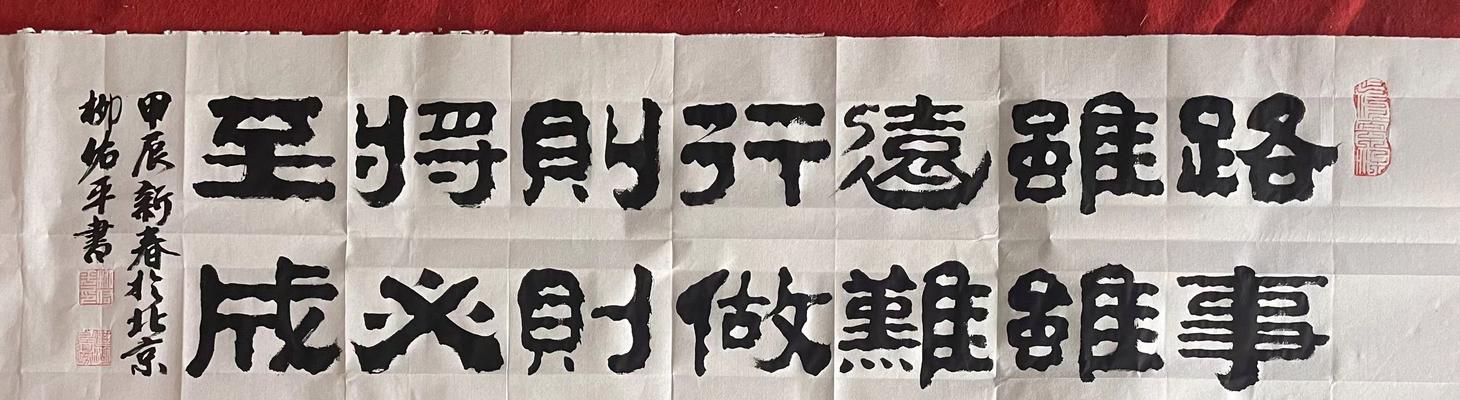 路雖遠行則將至
事雖難做則必成
甲辰新春於北京
柳佑平書